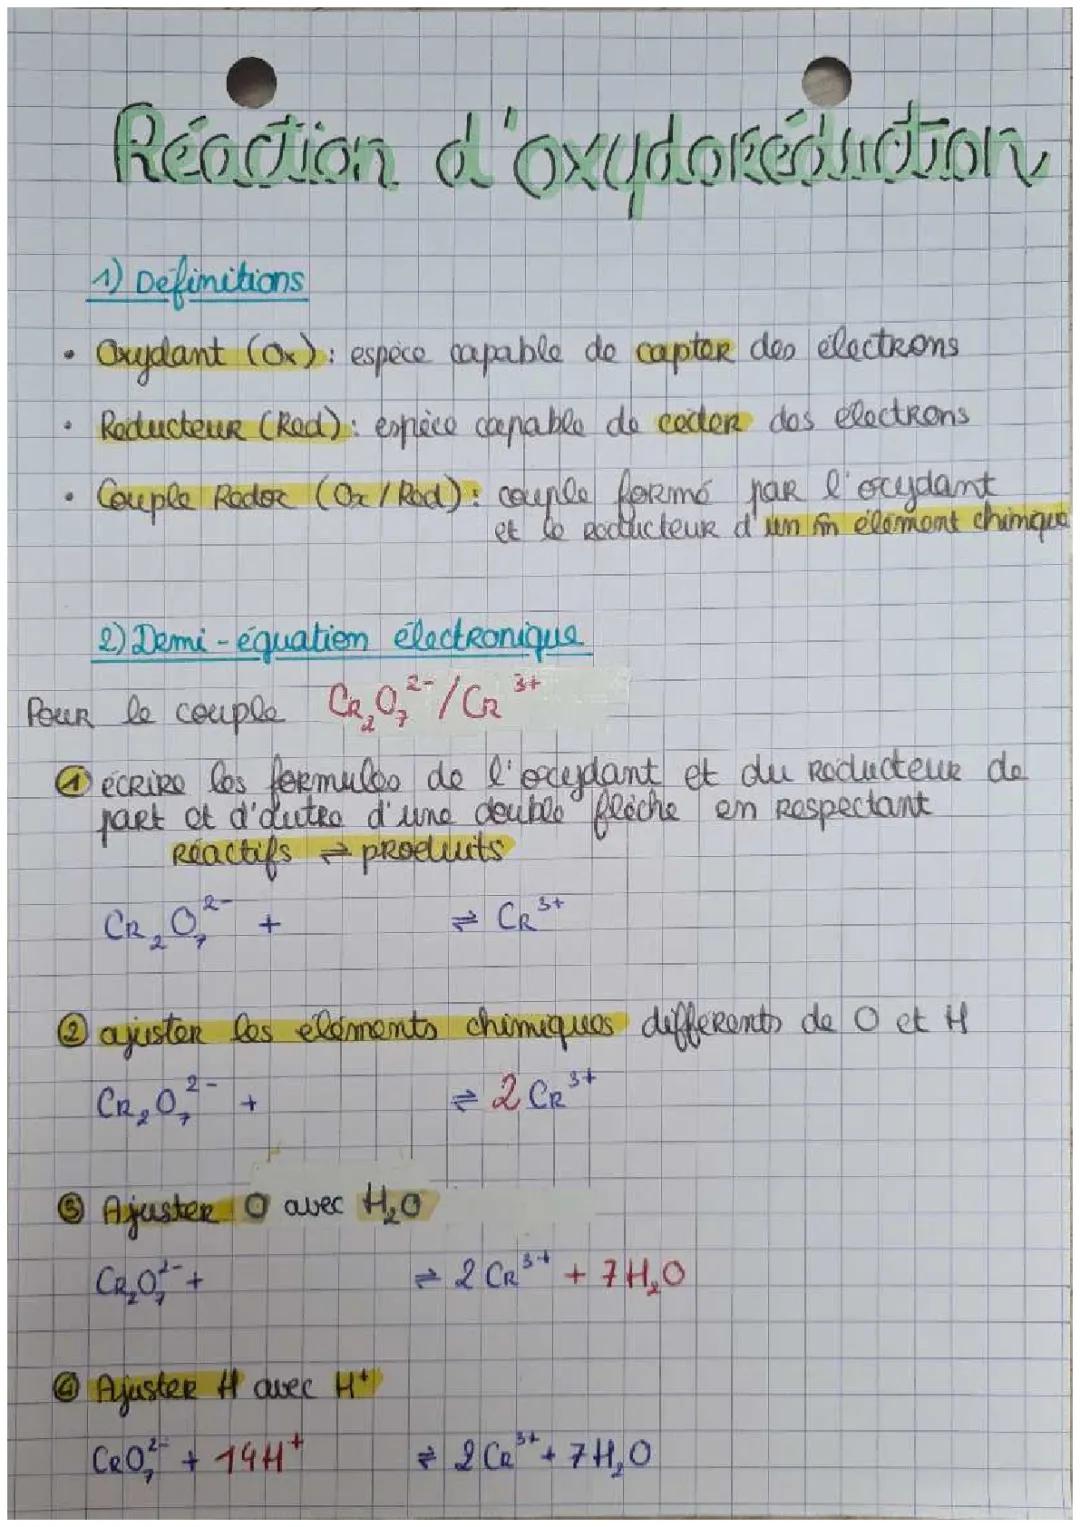 Réaction d'oxydoréduction
1) Définitions
• Oxydant (Ox) : espèce capable de capter des électrons
• Réducteur (Red) : espèce capable de céder des électrons
• Couple Redox (Ox / Red) : couple formé par l'oxydant
et le réducteur d'un m̂ élément chimique
2) Demi-équation électronique
Pour le couple Cr₂O₇²⁻/Cr³⁺
① écrire les formules de l'oxydant et du réducteur de
part et d'autre d'une double flèche en respectant
réactifs ⇌ produits
Cr₂O₇²⁻ + ⇌ Cr³⁺
② ajuster les éléments chimiques différents de O et H
Cr₂O₇²⁻ + ⇌ 2 Cr³⁺
③ Ajuster O avec H₂O
Cr₂O₇²⁻ + ⇌ 2 Cr³⁺ + 7 H₂O
④ Ajuster H avec H⁺
CrO₇²⁻ + 14H⁺ ⇌ 2 Cr³⁺ + 7 H₂O